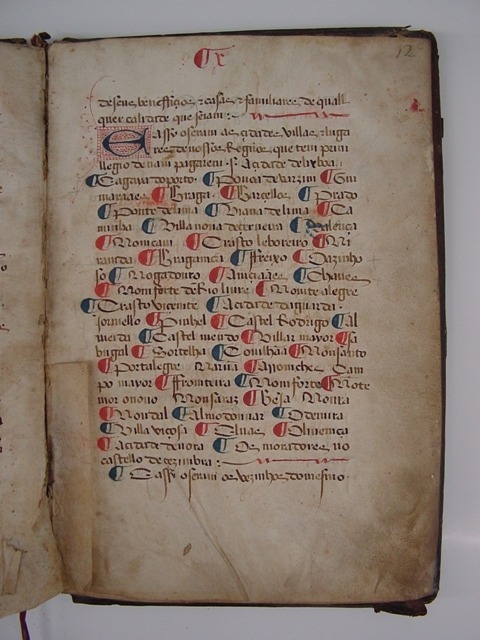 ¶ x
12
de seus beneffiçios e casas e familiares de qual
quer calidade que seiam :
E assy o seram as çidades villas e luga
res de nossos Regnos que tem priui
legio de nam pagarem .s. A çidade de lixboa .
¶ E a gaya do porto ¶ Pouoa de varzim ¶ Gui
maraães ¶ Braga ¶ Barçellos ¶ Prado
¶ Ponte de lima ¶ Viana de lima ¶ Ca
minha ¶ Villa noua de cerueira ¶ Valença
¶ Monçam ¶ Crasto leboreiro ¶ Mi
randa ¶ Bragança ¶ Ffreixo ¶ O azinho
so ¶ Mogadouro ¶ Anciaães ¶ Chaues
¶ Monforte de Rio liure ¶ Monte alegre
¶ Crasto vicente ¶ A cidade da guarda .
Jormello ¶ Pinhel ¶ Castel Rodrigo ¶ Al
meida ¶ Castel mendo ¶ Villar mayor ¶ Sa
bugal ¶ Sortelha ¶ Couilhaã ¶ Monsanto
¶ Portalegre Maruã ¶ Arronches Cam
po mayor ¶ Ffronteira ¶ Monforte ¶ Monte
mor o nouo Monsaraz ¶ Beja Moura
¶ Noudal ¶ Almodouuar ¶ Odemira
¶ Villa viçosa ¶ Eluas ¶ Oliuença
¶ A cidade deuora ¶ Os moradores no
castello de cezimbra :
¶ E assy o seram os vezinhos do mesmo